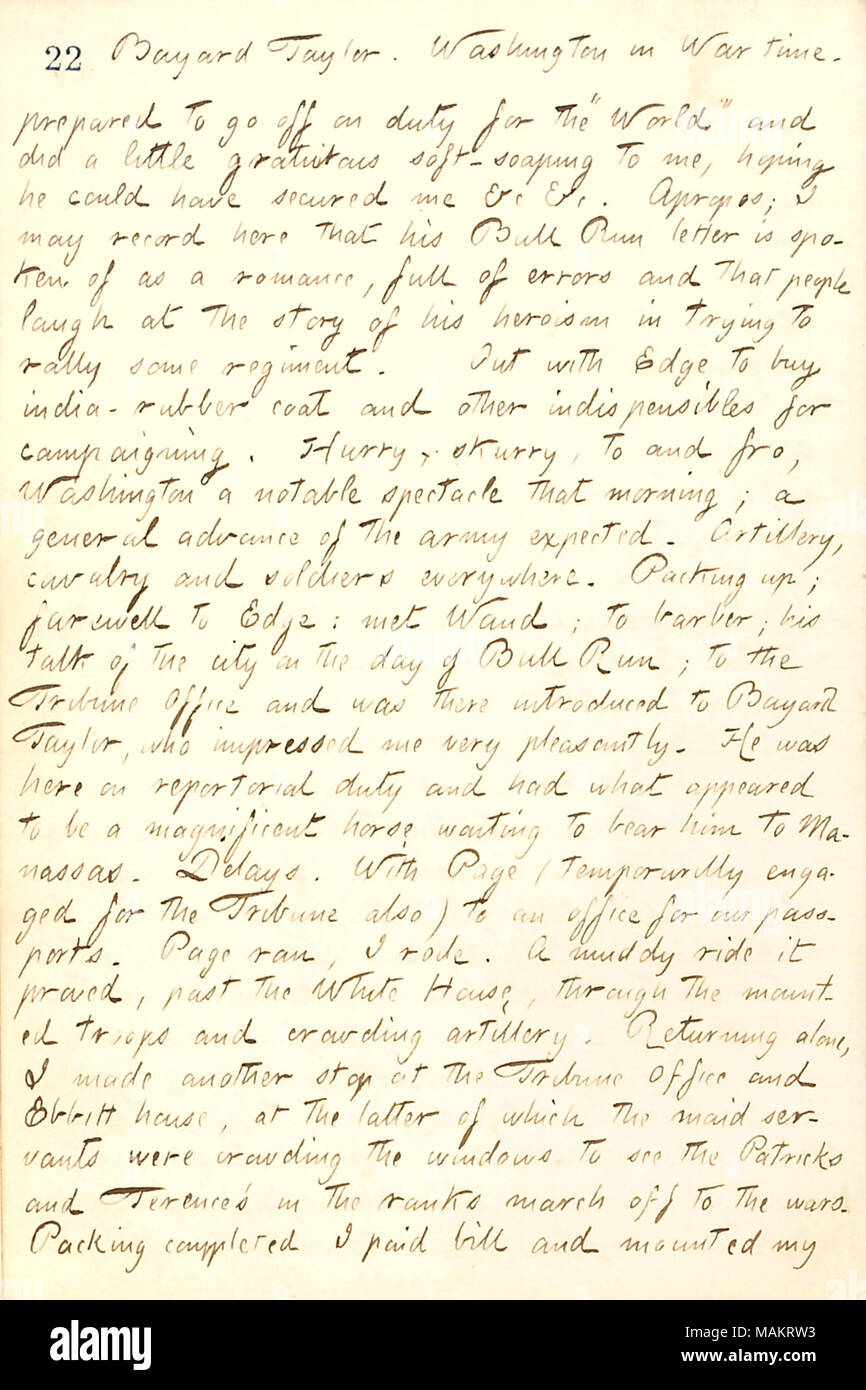 22 Bayard Taylor. Washington in War time.
prepared to go off on duty for the "World" and
did a little gratuitous soft-soaping to me, hoping
he could have secured me &c &c. Apropos; I
may record here that his Bull Run letter is spo-
ken of as a romance, full of errors and that people
laugh at the story of his heroism in trying to
rally some regiment. Out with Edge to buy
india-rubber coat and other indispensibles for
campaigning. Hurry, skurry, to and fro,
Washington a notable spectacle that morning; a
general advance of the army expected. Artillery,
cavalry and soldiers everywhere. Packing up;
farewell to Edge: met Waud; to barber; his
talk of the city on the day of Bull Run; to the
Tribune Office and was there introduced to Bayard
Taylor, who impressed me very pleasantly. He was
here on reportorial duty and had what appeared
to be a magnificent horse waiting to bear him to Ma-
nassas. Delays. With Page (temporarilly enga-
ged for the Tribune also) to an office for our pass-
ports. Page ran, I rode. A muddy ride it
proved, past the White House, through the mount-
ed troops and crowding artillery. Returning alone,
I made another stop at the Tribune Office and
Ebbitt house, at the latter of which the maid ser-
vants were crowding the windows to see the Patricks
and Terence's in the ranks march off to the wars.
Packing completed I paid bill and mounted my
alamy
Image ID: MAKRW3
www.alamy.com